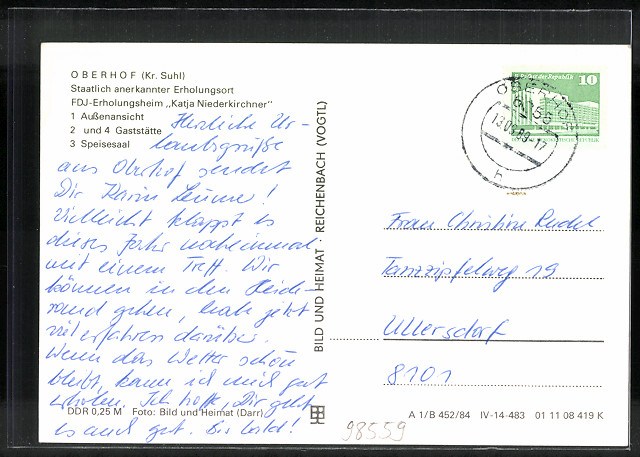 OBERHOF (Kr. Suhl)
Staatlich anerkannter Erholungsort
FDJ-Erholungsheim „Katja Niederkirchner"
1 Außenansicht
2 und 4 Gaststätte
3 Speisesaal
Herzliche Ur-
laubsgrüße
aus Oberhof sendet
Dir Karin
Vielleicht klappt es
dieses Jahr noch einmal
mit einem Treff. Wir
können in den
gehen, habe jetzt
viel erfahren darüber.
Wenn das Wetter schön
bleibt, kann ich mich gut
erholen. Ich hoffe, Dir geht
es auch gut. Bis bald!
DDR 0,25 M Foto: Bild und Heimat (Darr)
BILD UND HEIMAT REICHENBACH (VOGTL)
Palast der Republik
10
OBERHOF
6055
h
Frau Christine
Tanzzipfelweg 19
Ullersdorf
8101
A 1/B 452/84 IV-14-483 01 11 08 419 K
98559